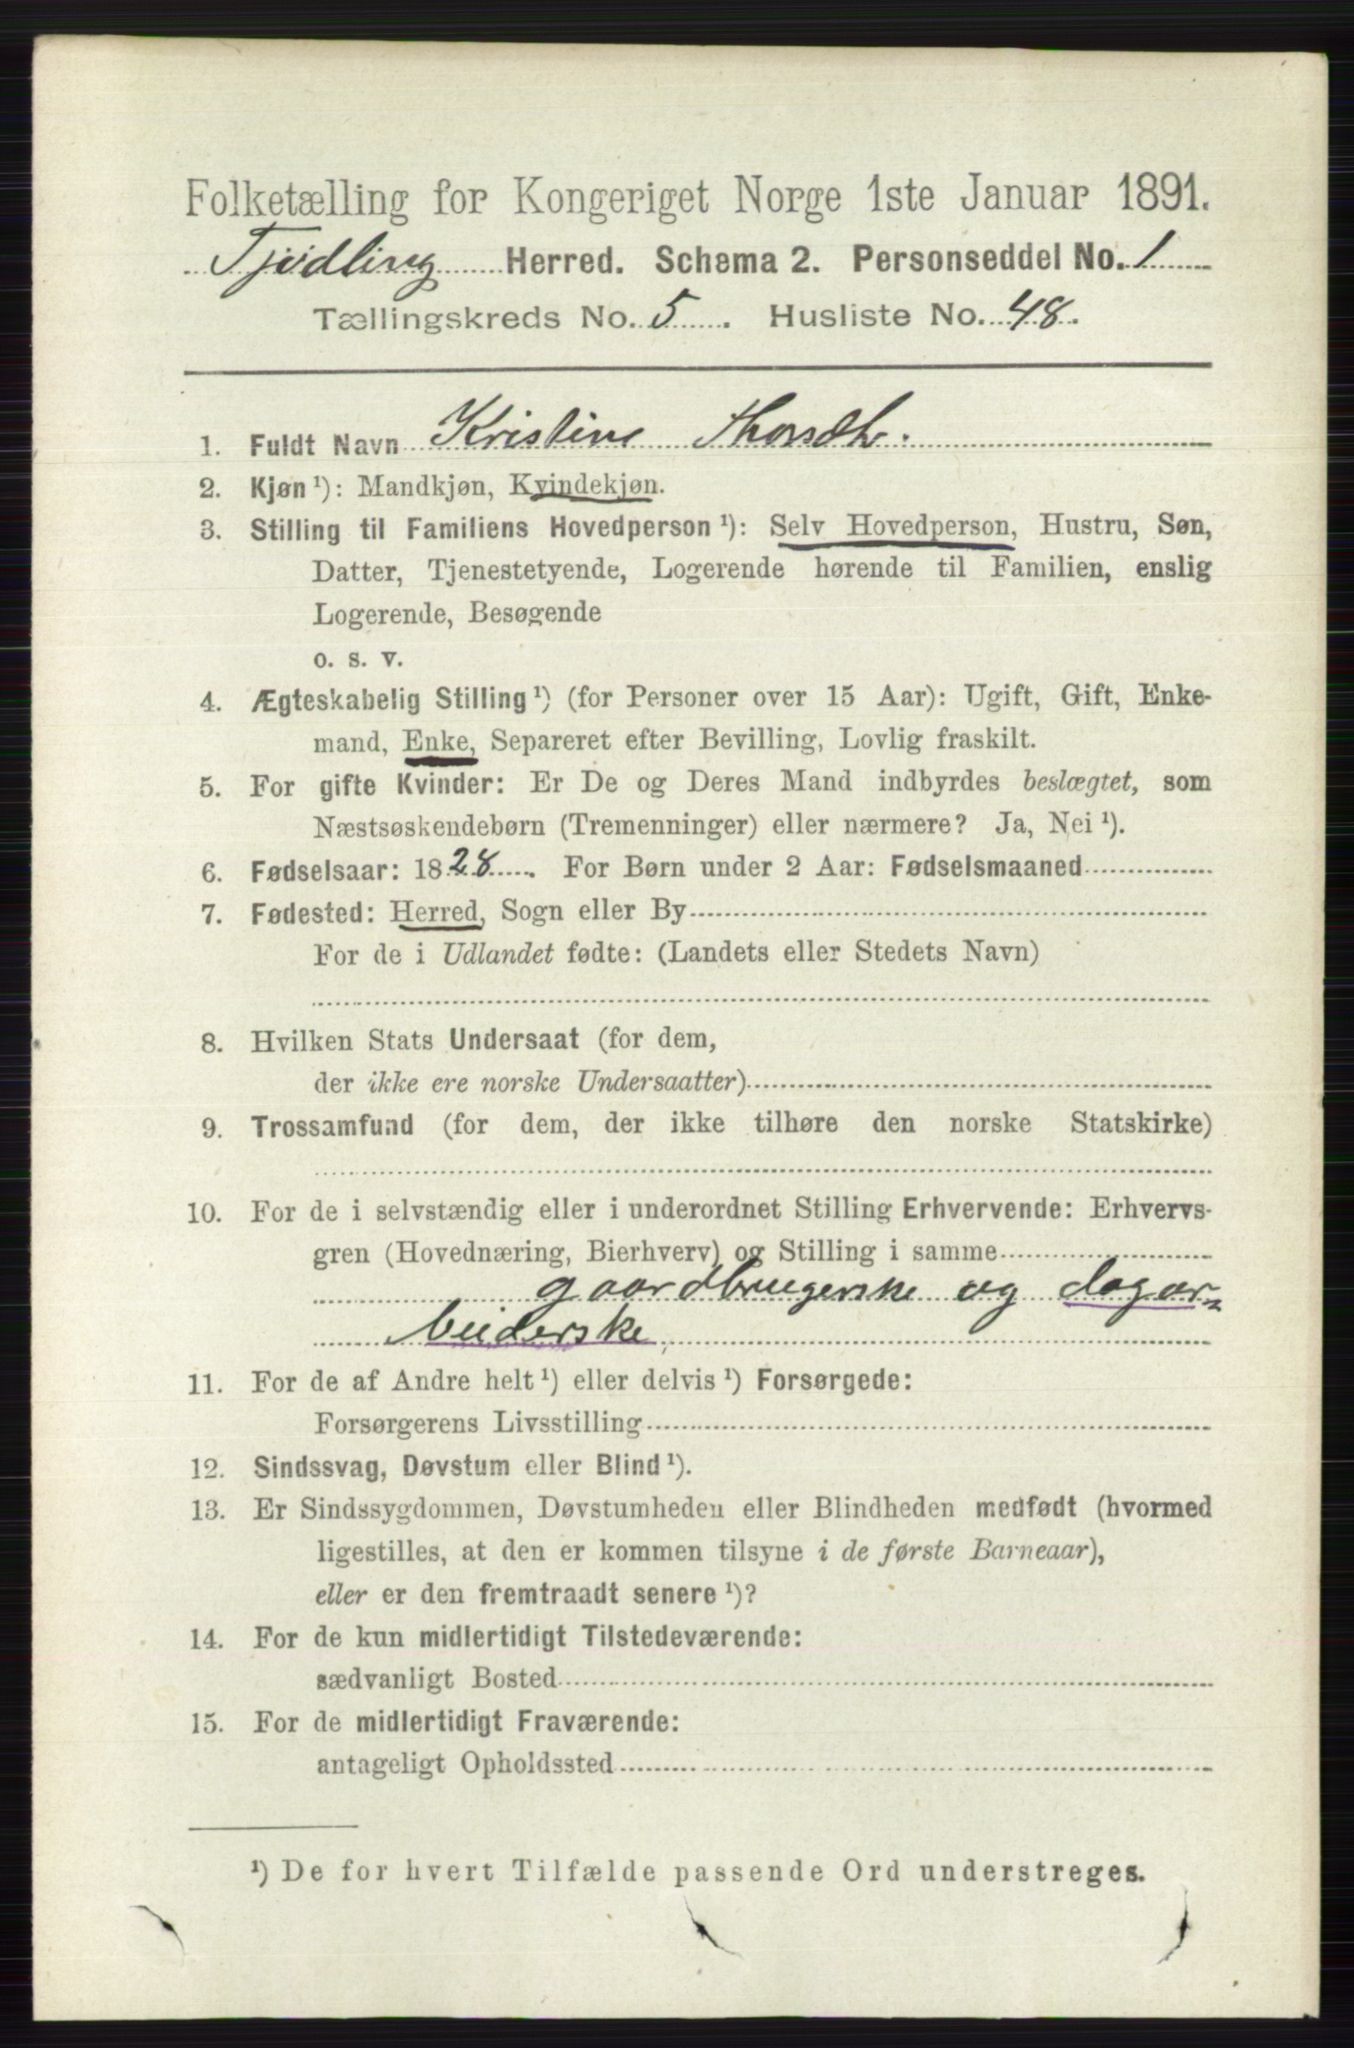 Folketælling for Kongeriget Norge 1ste Januar 1891.
Tjødling Herred. Schema 2. Personseddel No. 1
Tællingskreds No. 5. Husliste No. 48.
1. Fuldt Navn Kristine
2. Kjøn ¹): Mandkjøn, Kvindekjøn.
3. Stilling til Familiens Hovedperson ¹): Selv Hovedperson, Hustru, Søn,
Datter, Tjenestetyende, Logerende hørende til Familien, enslig
Logerende, Besøgende
o. s. v.
4. Ægteskabelig Stilling ¹) (for Personer over 15 Aar): Ugift, Gift, Enke-
mand, Enke, Separeret efter Bevilling, Lovlig fraskilt.
5. For gifte Kvinder: Er De og Deres Mand indbyrdes beslægtet, som
Næstsøskendebørn (Tremenninger) eller nærmere? Ja, Nei ¹).
6. Fødselsaar: 1828. For Børn under 2 Aar: Fødselsmaaned
7. Fødested: Herred, Sogn eller By
For de i Udlandet fødte: (Landets eller Stedets Navn)
8. Hvilken Stats Undersaat (for dem,
der ikke ere norske Undersaatter)
9. Trossamfund (for dem, der ikke tilhøre den norske Statskirke)
10. For de i selvstændig eller i underordnet Stilling Erhvervende: Erhvervs-
gren (Hovednæring, Bierhverv) og Stilling i samme
gaardbrugerske og dagar-
beiderske
11. For de af Andre helt ¹) eller delvis ¹) Forsørgede:
Forsørgerens Livsstilling
12. Sindssvag, Døvstum eller Blind ¹).
13. Er Sindssygdommen, Døvstumheden eller Blindheden medfødt (hvormed
ligestilles, at den er kommen tilsyne i de første Barneaar),
eller er den fremtraadt senere ¹)?
14. For de kun midlertidigt Tilstedeværende:
sædvanligt Bosted
15. For de midlertidigt Fraværende:
antageligt Opholdssted
¹) De for hvert Tilfælde passende Ord understreges.